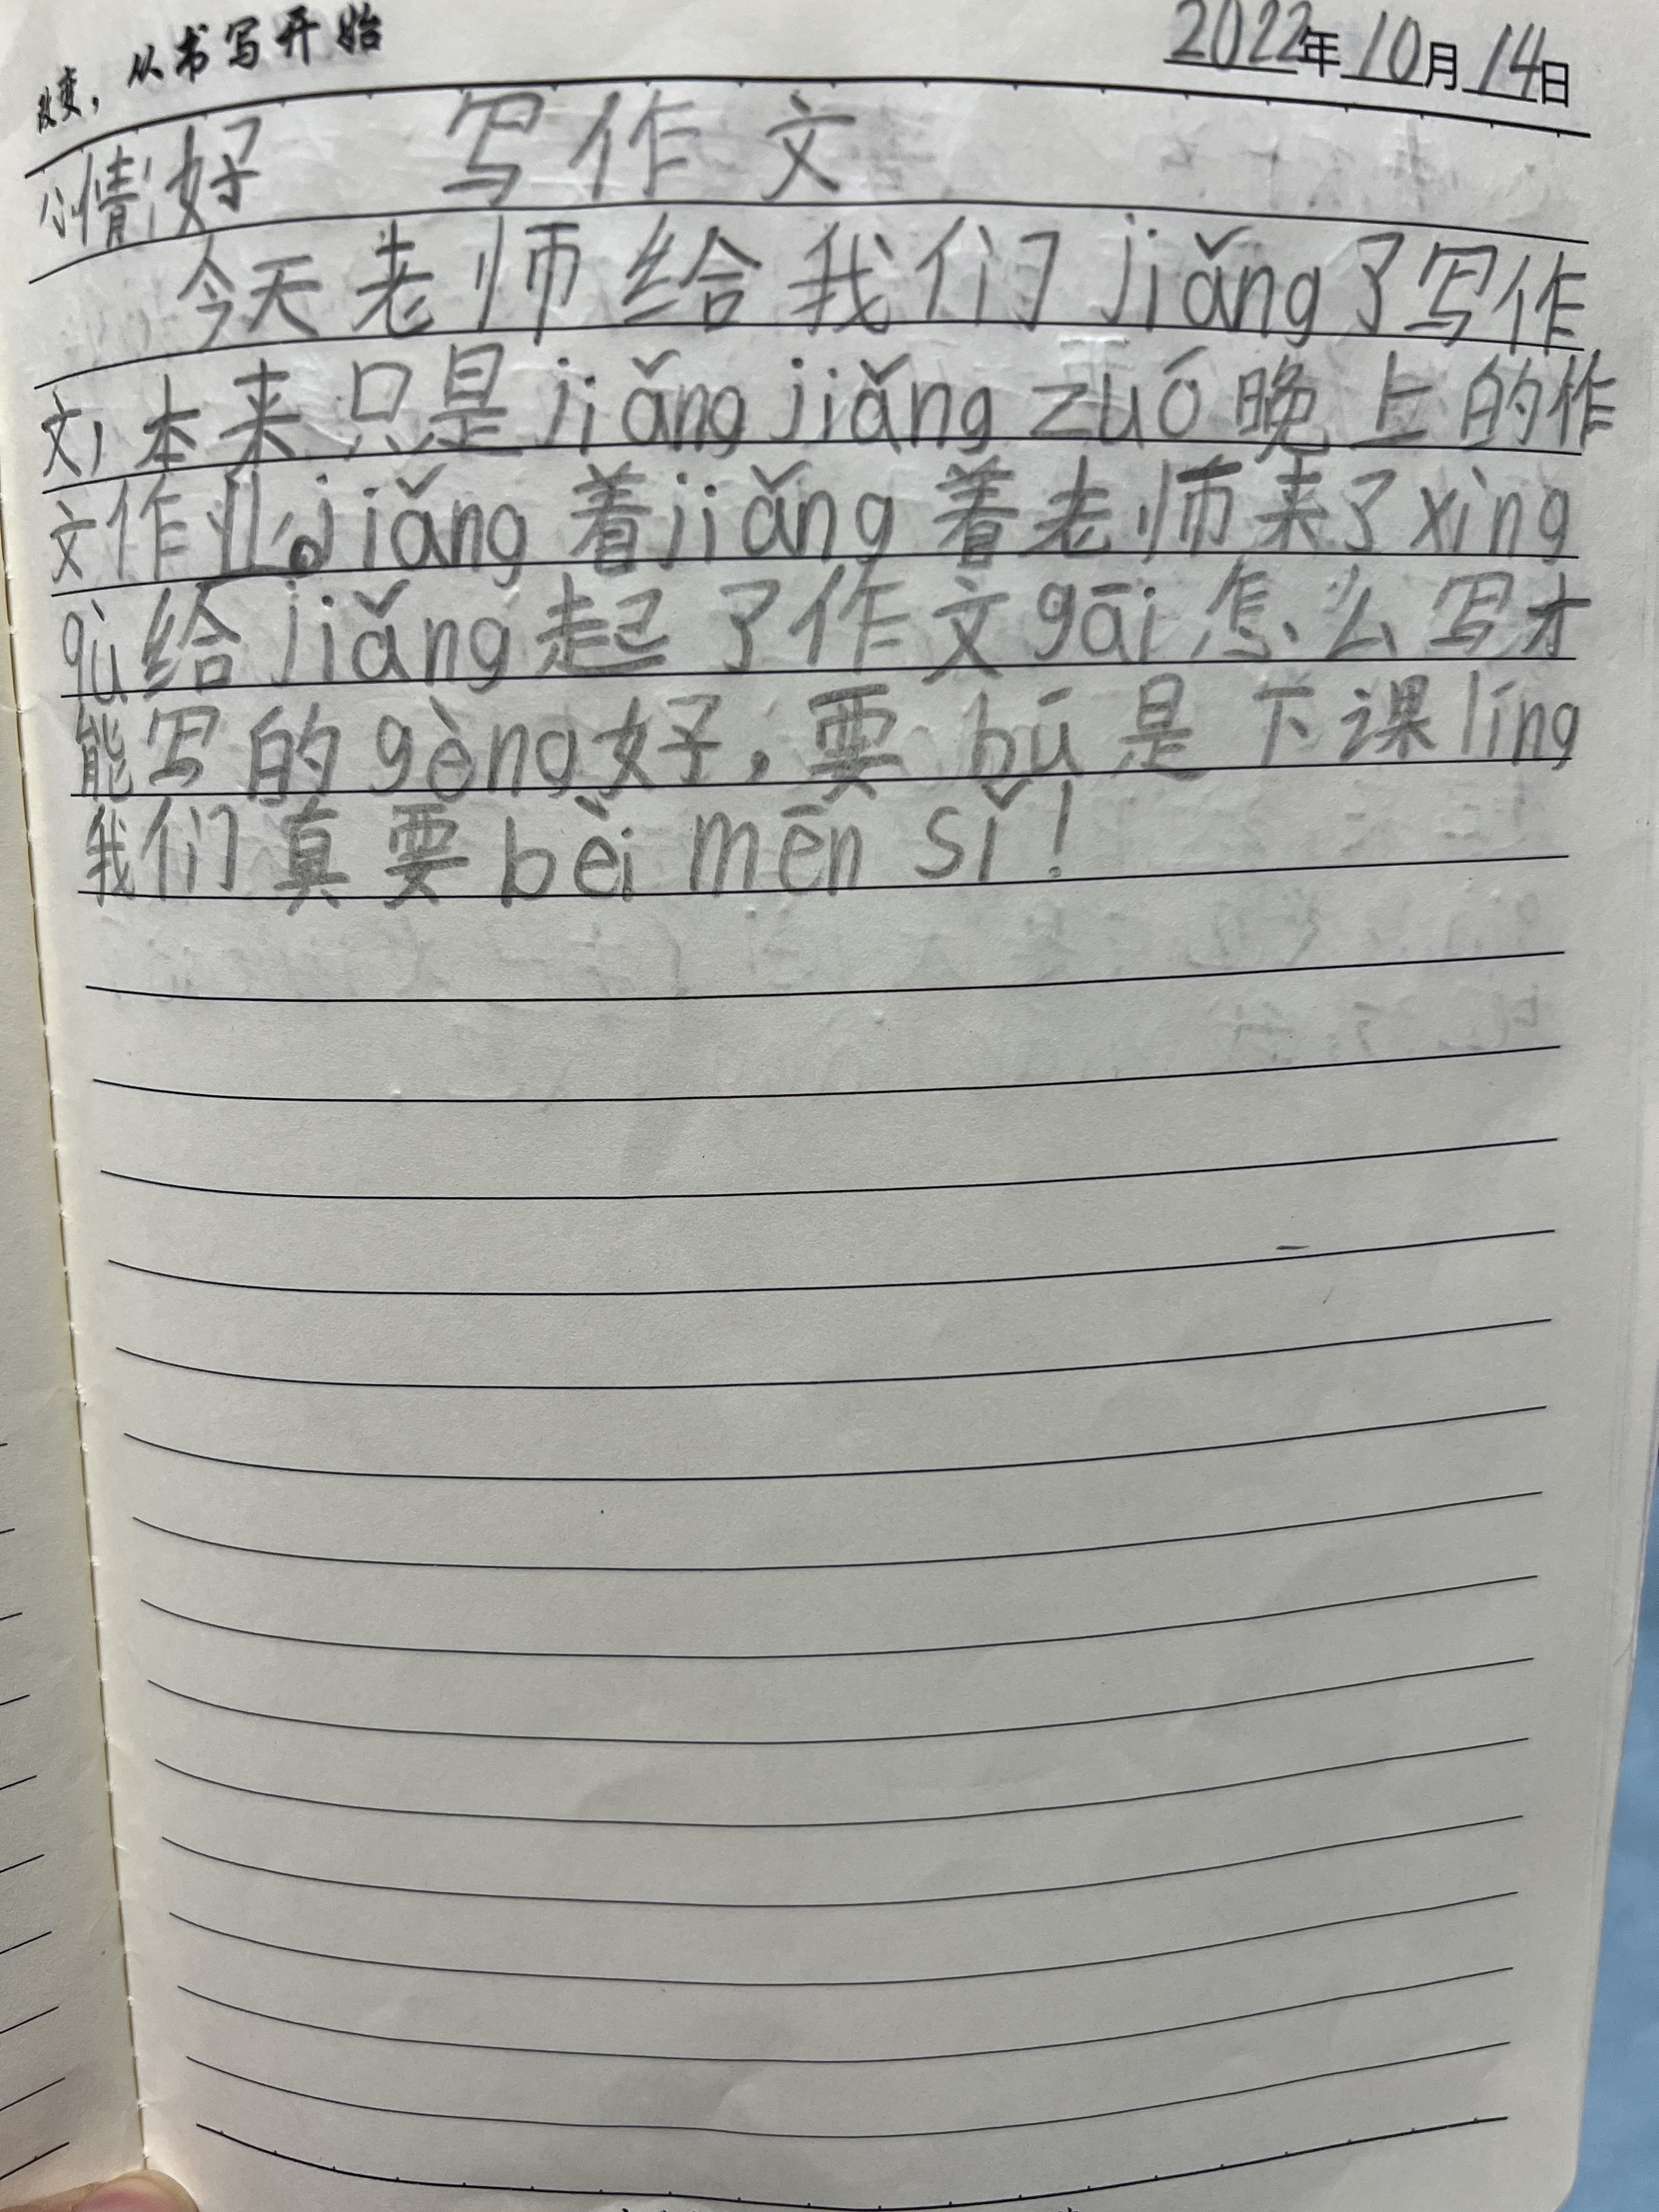 改变，从书写开始
2022年10月14日
心情：好 写作文
今天老师给我们jiǎng了写作
文，本来只是jiǎngjiǎng zuó晚上的作
文作业。jiǎng着jiǎng着老师来了xìng
qù给jiǎng起了作文gāi怎么写才
能写的gèng好，要bú是下课líng
我们真要bèi mēn sǐ！